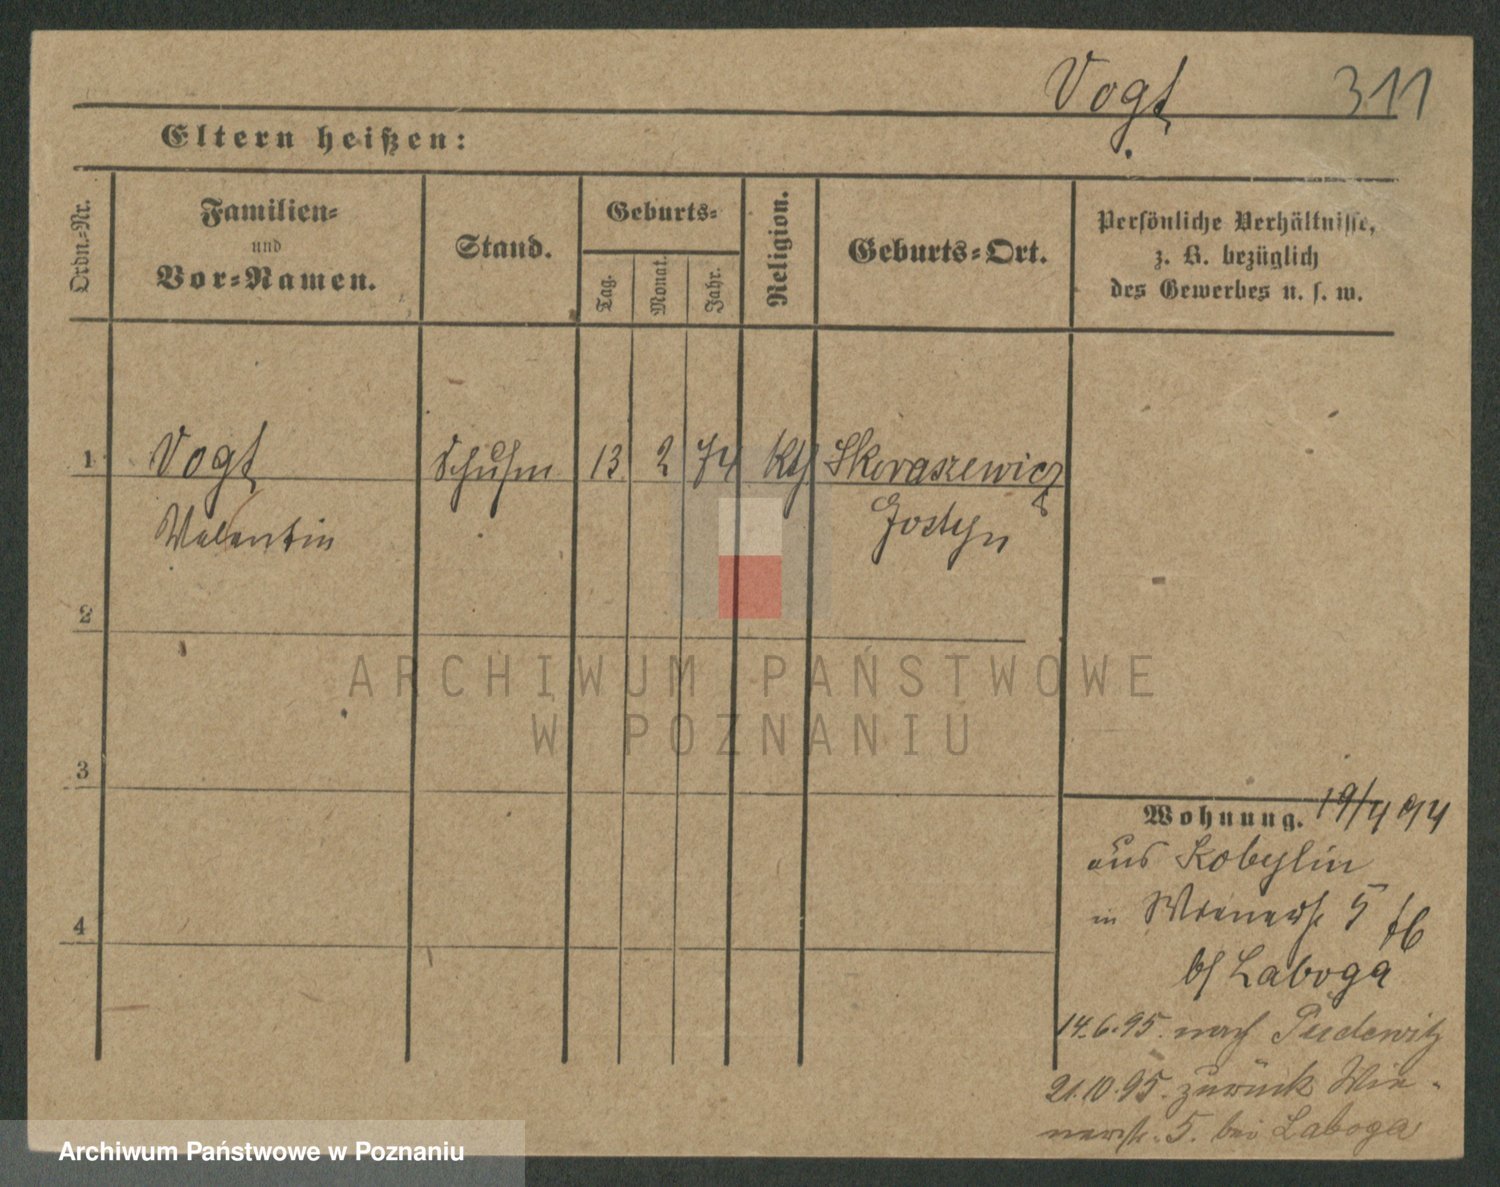 Vogt 311
Eltern heißen:
Ordn.-Nr.
Familien-
und
Vor-Namen.
Stand.
Geburts-
Tag.
Monat.
Jahr.
Religion.
Geburts-Ort.
Persönliche Verhältnisse,
z. B. bezüglich
des Gewerbes u. s. w.
1 Vogt Schuhm 13 2 74 Kth Skoraszewicz
Valentin Gostyn
2
ARCHIWUM PAŃSTWOWE
W POZNANIU
3
Wohnung. 19/4 94
aus Kobylin
in Wienerstr 5
b/ Laboga
4
14.6.95. nach Pudewitz
21.10.95. zurück Wie-
nerstr. 5. bei Laboga
Archiwum Państwowe w Poznaniu